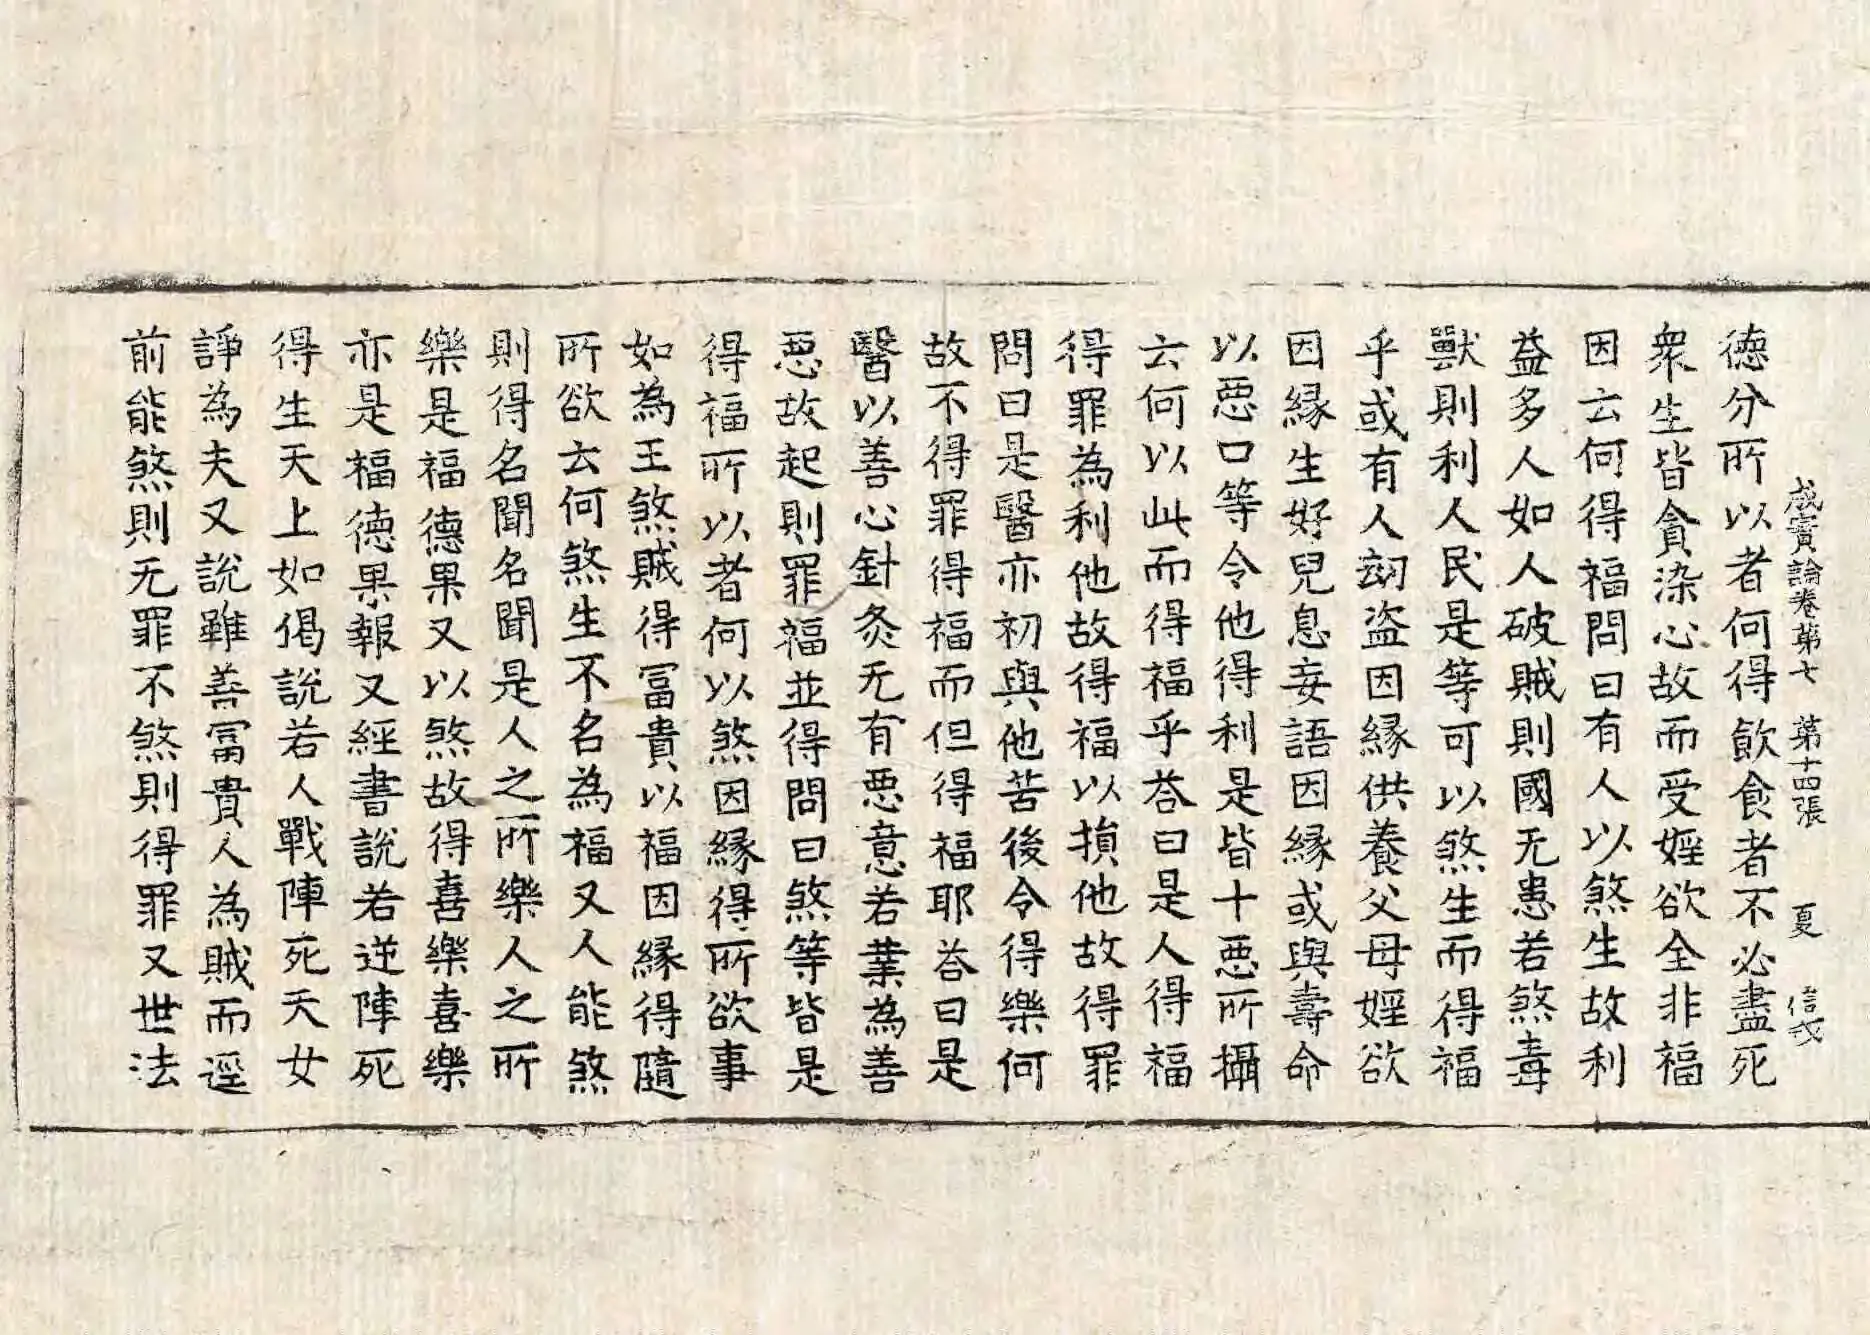 成實論卷第七 第十四張 夏 信戎
德分所以者何得飮食者不必盡死
衆生皆貪染心故而受婬欲全非福
因云何得福問曰有人以煞生故利
益多人如人破賊則國无患若煞毒
獸則利人民是等可以煞生而得福
乎或有人刧盗因縁供養父母婬欲
因縁生好兒息妄語因縁或與壽命
以惡口等令他得利是皆十惡所攝
云何以此而得福乎荅曰是人得福
得罪為利他故得福以損他故得罪
問曰是醫亦初與他苦後令得樂何
故不得罪得福而但得福耶荅曰是
醫以善心針灸无有惡意若業為善
惡故起則罪福並得問曰煞等皆是
得福所以者何以煞因縁得所欲事
如為王煞賊得冨貴以福因縁得隨
所欲云何煞生不名為福又人能煞
則得名聞名聞是人之所樂人之所
樂是福德果又以煞故得喜樂喜樂
亦是福德果報又經書說若逆陣死
得生天上如偈說若人戰陣死天女
諍為夫又說雖善冨貴人為賊而逕
前能煞則无罪不煞則得罪又世法